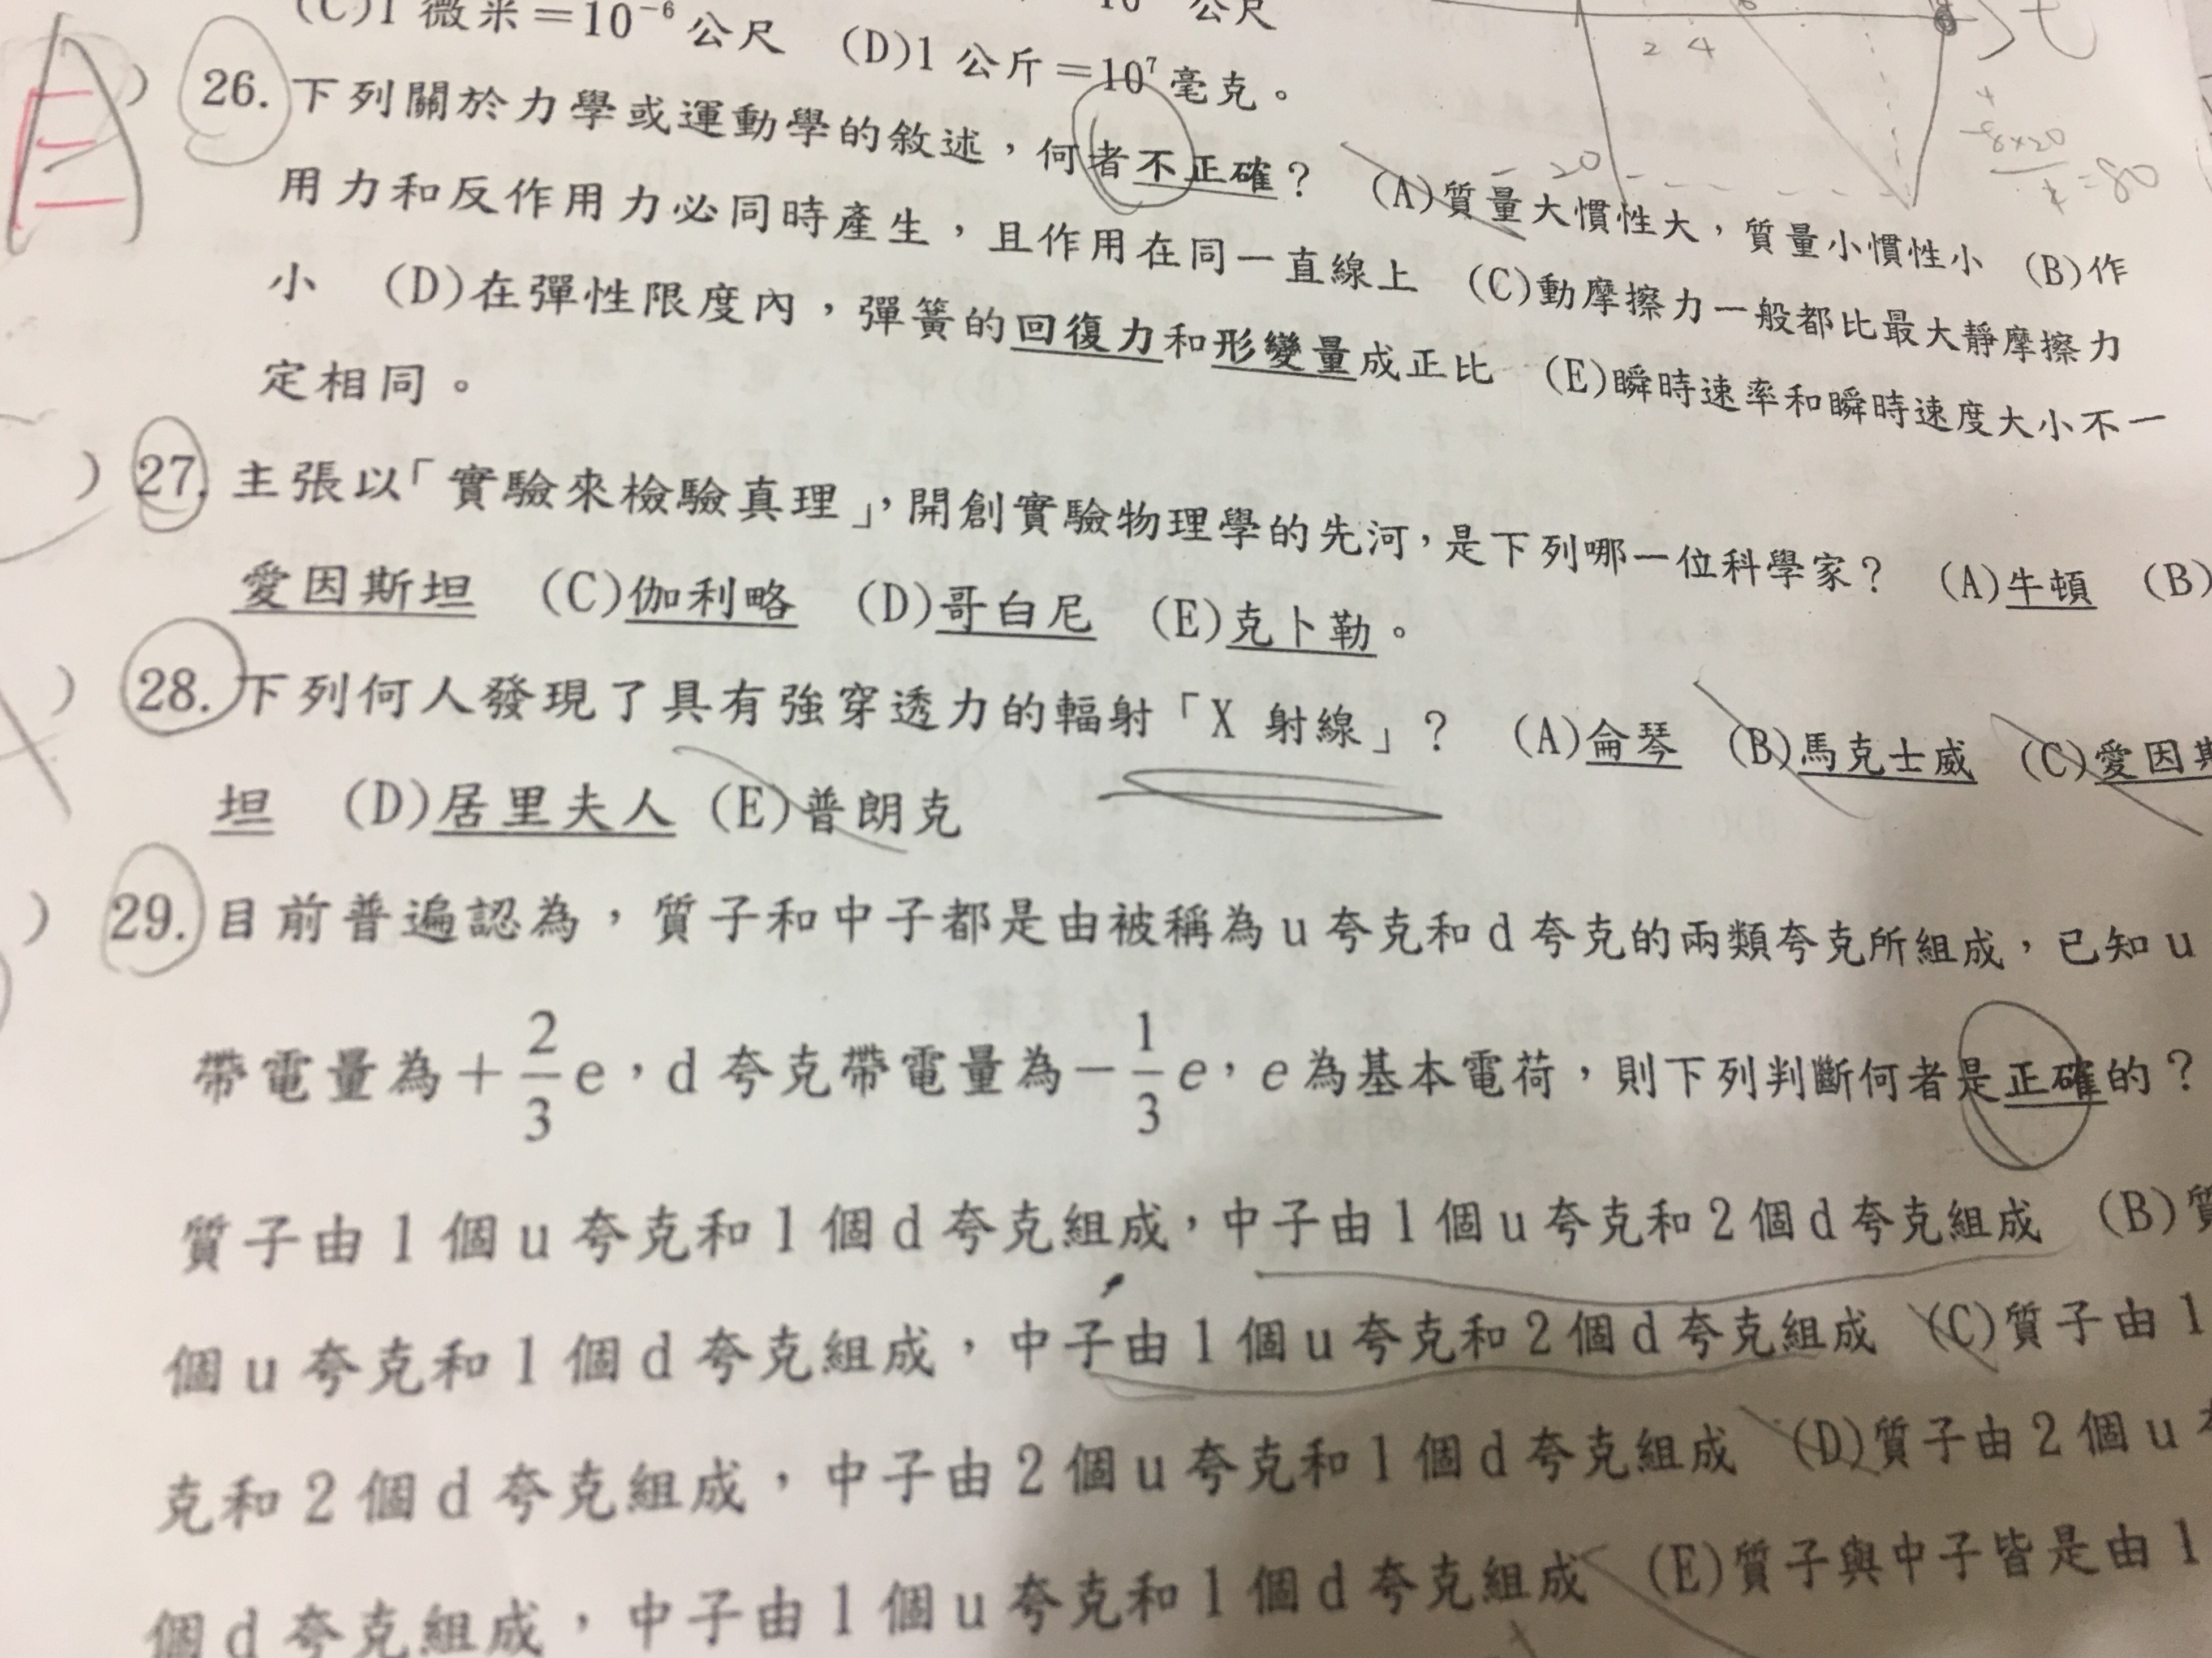 (C)1 微米＝10⁻⁶公尺 (D)1 公斤＝10⁷毫克。
26. 下列關於力學或運動學的敘述，何者不正確？ (A)質量大慣性大，質量小慣性小 (B)作
用力和反作用力必同時產生，且作用在同一直線上 (C)動摩擦力一般都比最大靜摩擦力
小 (D)在彈性限度內，彈簧的回復力和形變量成正比 (E)瞬時速率和瞬時速度大小不一
定相同。
) 27. 主張以「實驗來檢驗真理」，開創實驗物理學的先河，是下列哪一位科學家？ (A)牛頓 (B)
愛因斯坦 (C)伽利略 (D)哥白尼 (E)克卜勒。
) 28. 下列何人發現了具有強穿透力的輻射「X 射線」？ (A)侖琴 (B)馬克士威 (C)愛因斯
坦 (D)居里夫人 (E)普朗克
) 29. 目前普遍認為，質子和中子都是由被稱為 u 夸克和 d 夸克的兩類夸克所組成，已知 u
帶電量為＋2/3 e，d 夸克帶電量為－1/3 e，e 為基本電荷，則下列判斷何者是正確的？
質子由 1 個 u 夸克和 1 個 d 夸克組成，中子由 1 個 u 夸克和 2 個 d 夸克組成 (B)質
個 u 夸克和 1 個 d 夸克組成，中子由 1 個 u 夸克和 2 個 d 夸克組成 (C)質子由 1
克和 2 個 d 夸克組成，中子由 2 個 u 夸克和 1 個 d 夸克組成 (D)質子由 2 個 u
個 d 夸克組成，中子由 1 個 u 夸克和 1 個 d 夸克組成 (E)質子與中子皆是由 1
2 4
t
-20
=80